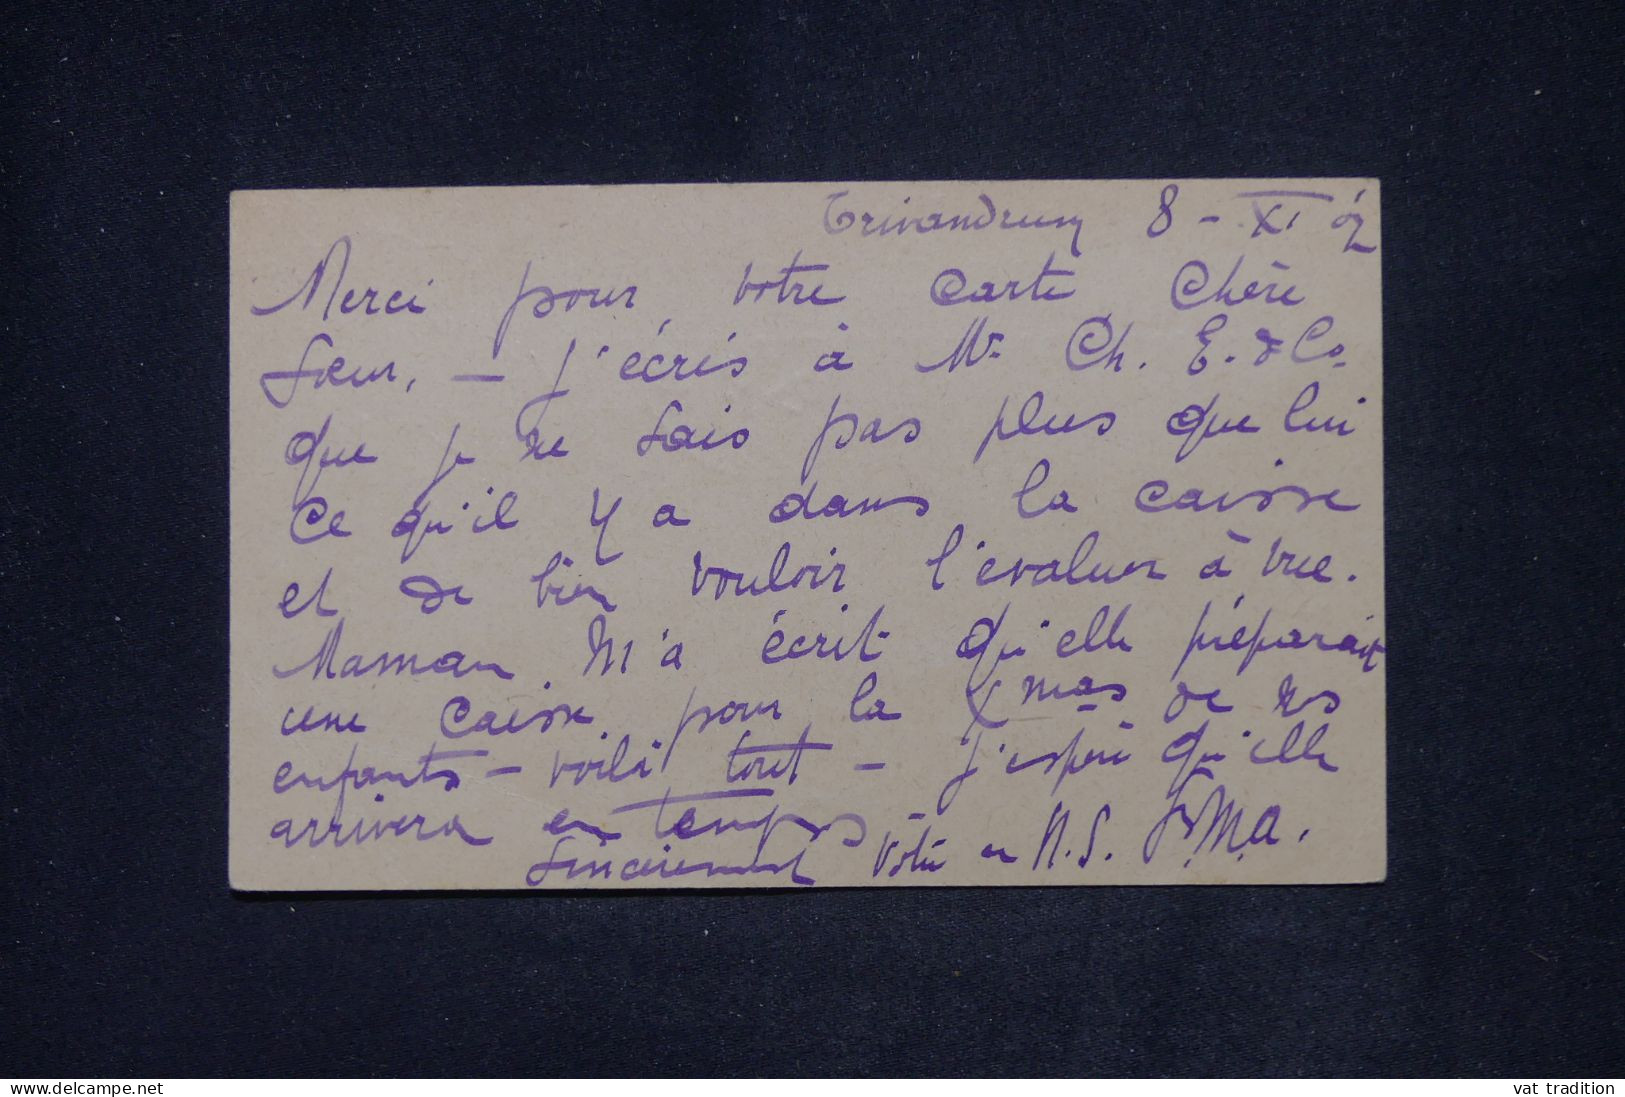 Trivandrum 8 - XI 02
Merci pour votre carte Chère
Sœur, — j'écris à Mr Ch. E. & Co.
que je ne sais pas plus que lui
ce qu'il y a dans la caisse
et de bien vouloir l'evaluer à vue.
Maman m'a écrit qu'elle préparait
une caisse pour la Xmas de ns
enfants — voilà tout — j'espère qu'elle
arrivera en temps
Sincèrement Vôtre en N.S. Sr M.A.
www.delcampe.net
vat tradition